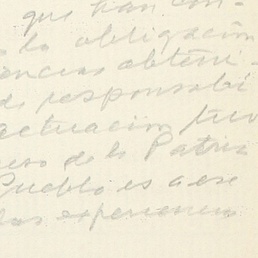 que han con-
la obligación
encias obteni-
de responsabi
actuacion tuvo
eso de la Patria
Pueblo es a ese
las experiencia